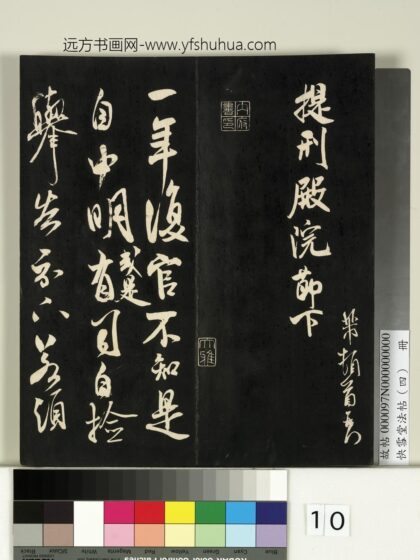 远方书画网-www.yfshuhua.com
提刑殿院節下
頓首
内府書印
大雅
一年復官不知是
自申明或是有司自捡
舉告示下若須
故帖 000097N000000000
快雪堂法帖（四） 册
10